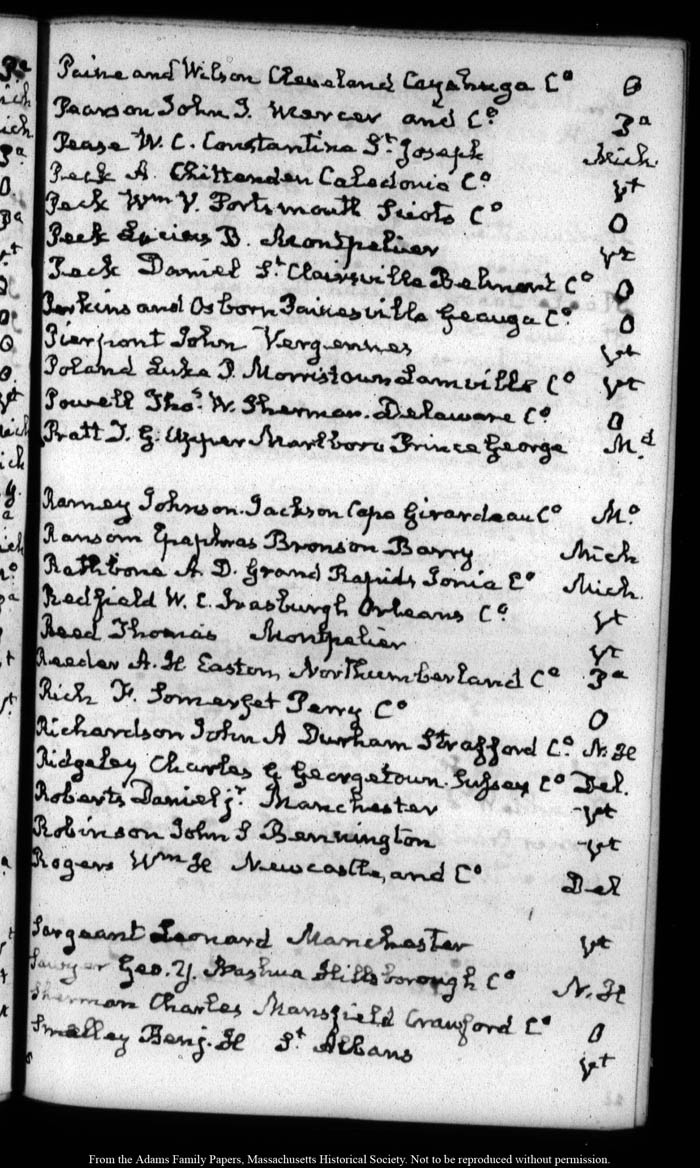 Paine and Wilson Cleveland Cayahuga Cº O
Pearson John J. Mercer and Cº Pª
Pease W. C. Constantine Sᵗ Joseph Mich
Peck A. Chittenden Caledonia Cº Vt
Peck Wᵐ V. Portsmouth Scioto Cº O
Peck Lucius B. Montpelier Vt
Peck Daniel Sᵗ Clairsville Belmont Cº O
Perkins and Osborn Painesville Geauga Cº O
Pierpont John Vergennes Vt
Poland Luke P. Morristown Lamville Cº Vt
Powell Thoˢ. W. Sherman. Delaware Cº O
Pratt T. G. Upper Marlboro Prince George Mᵈ
Ramey Johnson. Jackson Cape Girardeau Cº Mº
Ransom Epaphras Bronson Barry Mich
Rathbone A. D. Grand Rapids Ionia Cº Mich.
Redfield W. C. Irasburgh Orleans Cº Vt
Reed Thomas Montpelier Vt
Reeder A. H Easton, Northumberland Cº Pª
Rich F. Somerset Perry Cº O
Richardson John A Durham Strafford Cº N. H
Ridgeley Charles G Georgetown. Sussex Cº Del.
Roberts Daniel jʳ. Manchester Vt
Robinson John S Bennington Vt
Rogers Wᵐ H Newcastle, and Cº Del
Sargeant Leonard Manchester Vt
Sawyer Geo. Y. Nashua Hillsborough Cº N. H
Sherman Charles Mansfield Crawford Cº O
Smalley Benj. H Sᵗ Albans Vt
From the Adams Family Papers, Massachusetts Historical Society. Not to be reproduced without permission.